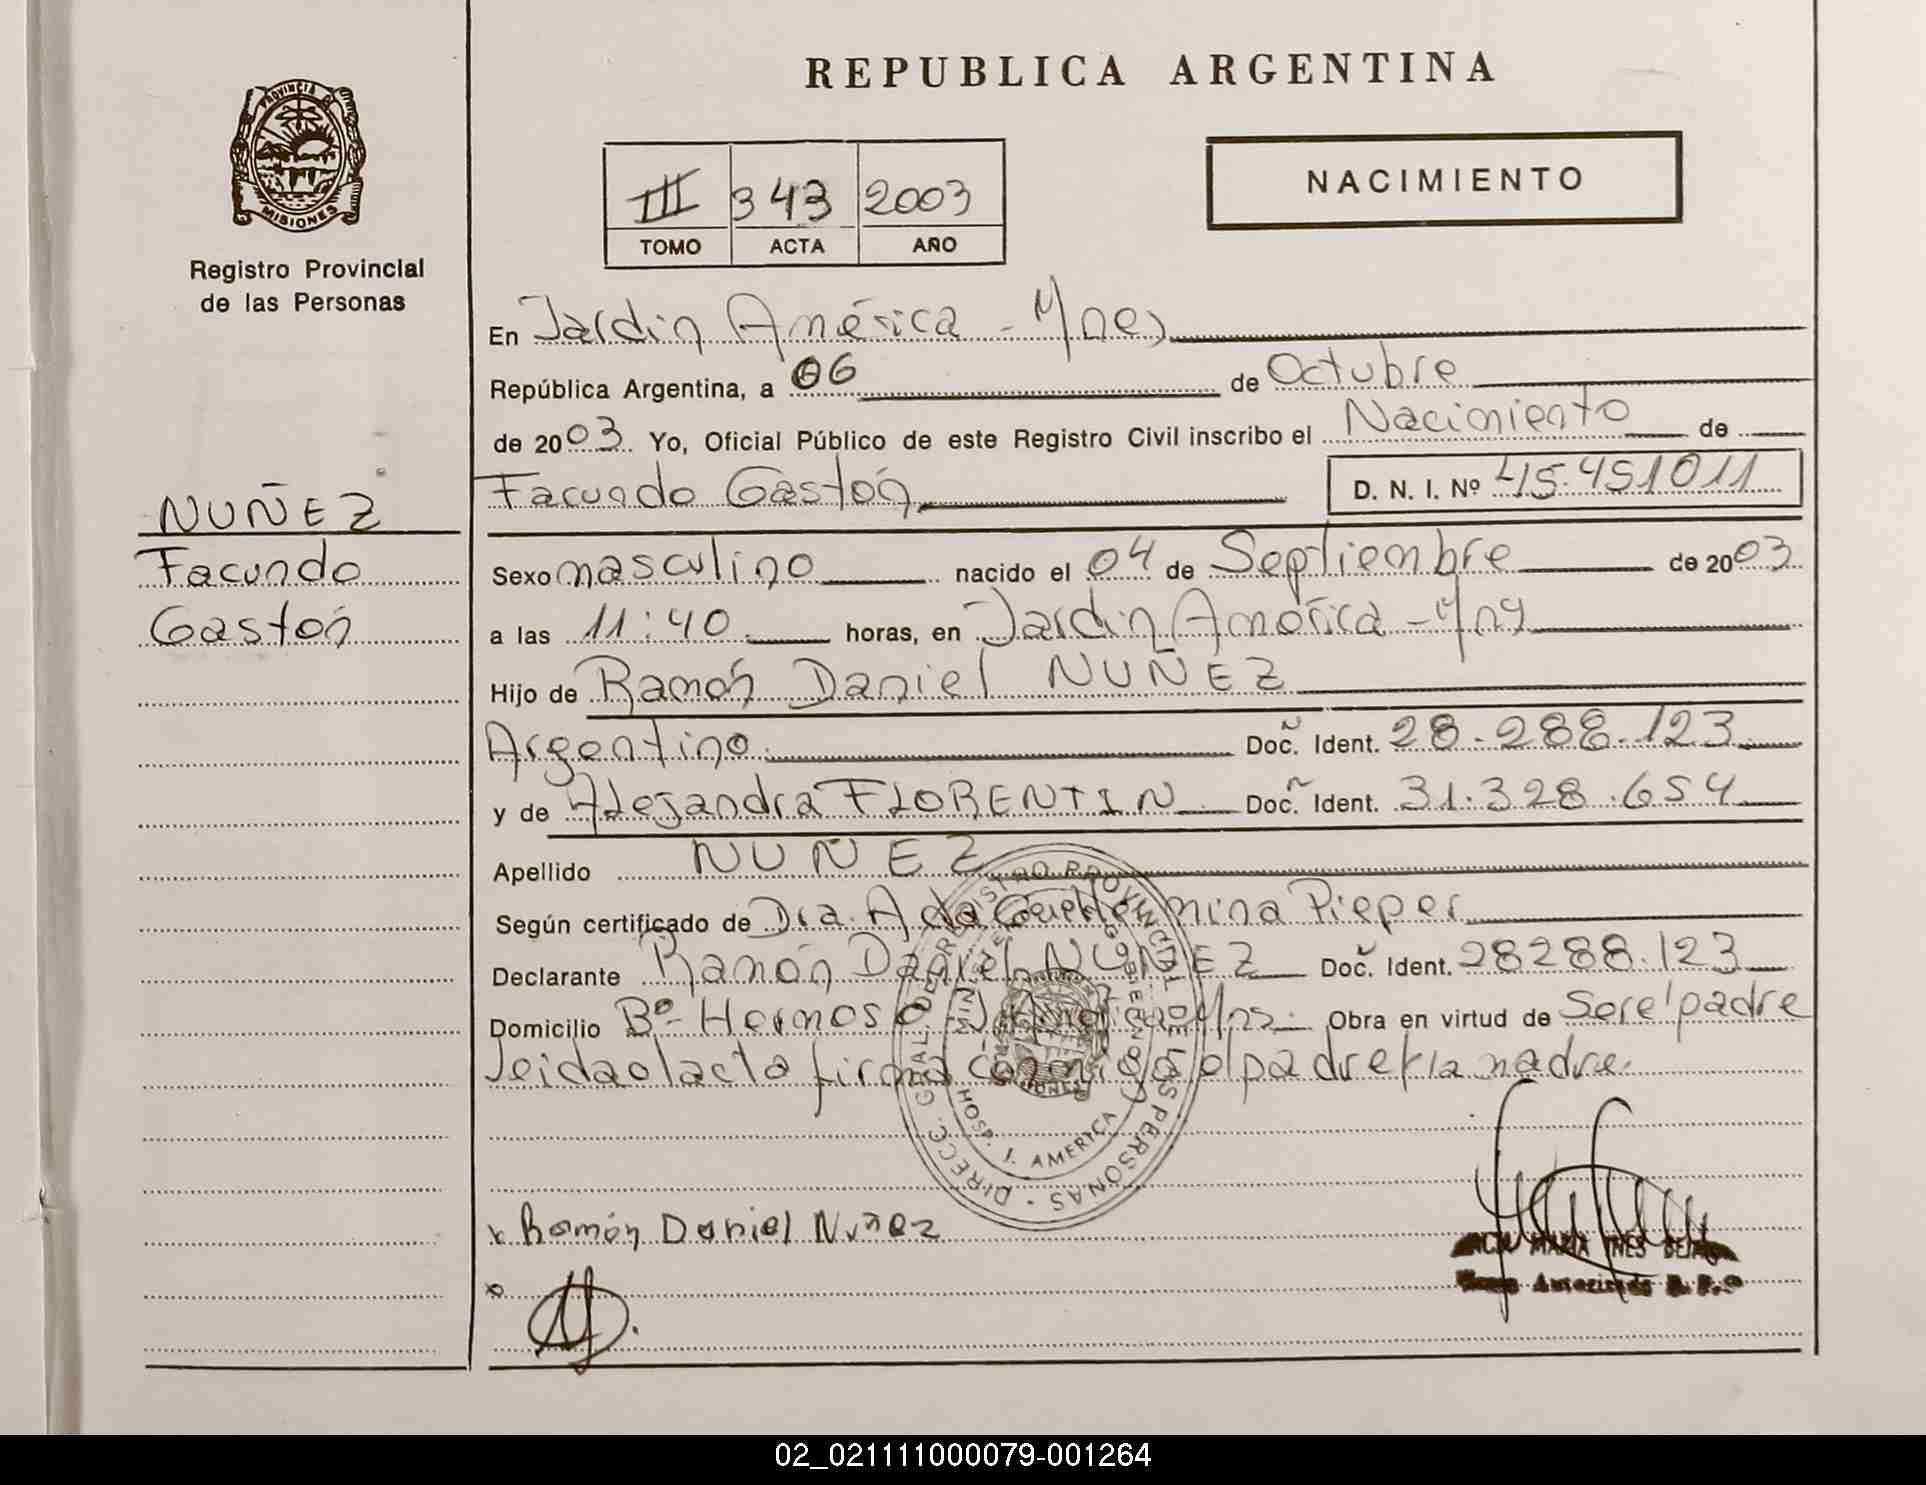 REPUBLICA ARGENTINA
PROVINCIA DE
MISIONES
Registro Provincial
de las Personas
III 343 2003
TOMO ACTA AÑO
NACIMIENTO
En Jardin América - Mnes
República Argentina, a 06 de Octubre
de 2003. Yo, Oficial Público de este Registro Civil inscribo el Nacimiento de
Facundo Gastón D. N. I. Nº 45.451011
NUÑEZ
Facundo
Gastón
Sexo masculino nacido el 04 de Septiembre de 2003
a las 11:40 horas, en Jardin América - Mns
Hijo de Ramón Daniel NUÑEZ
Argentino. Doc. Ident. 28.288.123
y de Alejandra FLORENTIN Doc. Ident. 31.328.654
Apellido NUÑEZ
Según certificado de Dra. Ada Guillermina Pieper
Declarante Ramón Daniel NUÑEZ Doc. Ident. 28288.123
Domicilio Bº Hermoso Obra en virtud de Ser el padre
leida el acta firma conmigo el padre y la madre.
DIRECC. GRAL. DEL REGISTRO PROVINCIAL DE LAS PERSONAS
HOSP. J. AMERICA
x Ramón Daniel Nuñez
MARIA INES
02_021111000079-001264